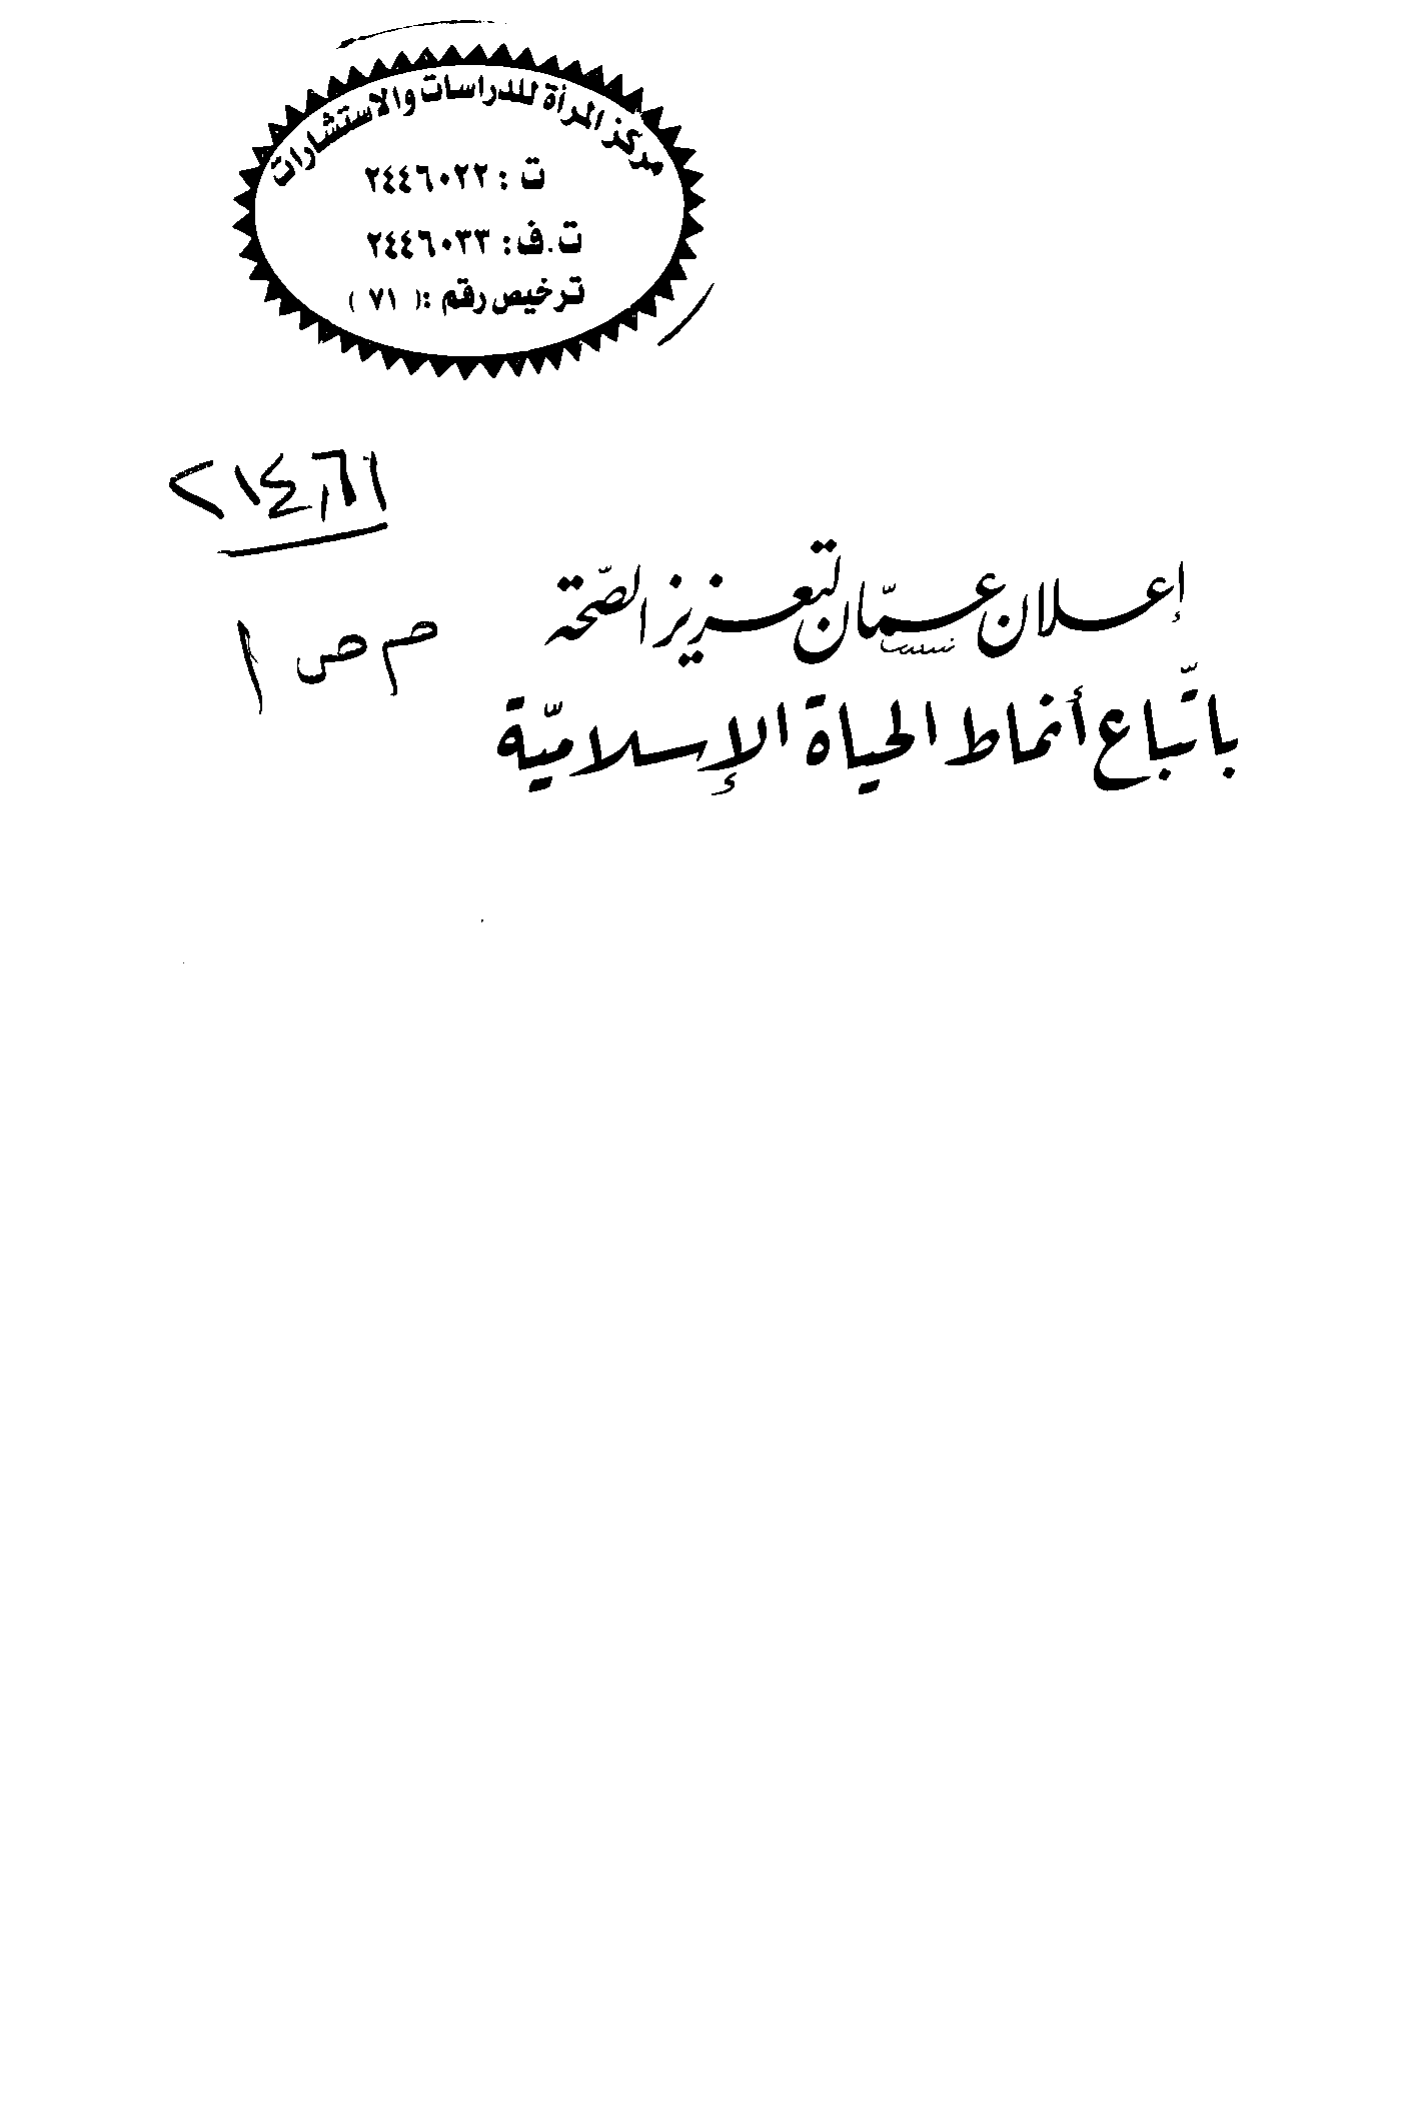 مركز المرأة للدراسات والاستشارات
ت : ٢٤٤٦٠٢٢
ت.ف: ٢٤٤٦٠٣٣
ترخيص رقم :( ٧١ )
٢١٤,٦١
إعلان عمّان لتعزيز الصّحة
م ص ١
باتّباع أنماط الحياة الإسلاميّة